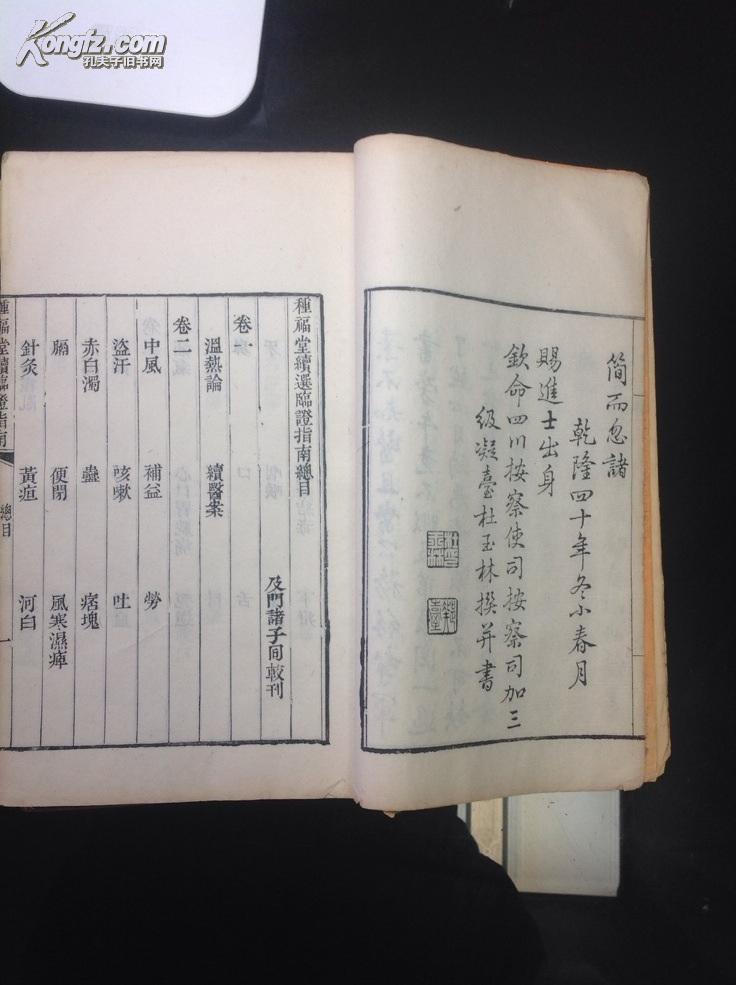 Kongfz.com
孔夫子旧书网
簡而忽諸
乾隆四十年冬小春月
賜進士出身
欽命四川按察使司按察司加三
級凝臺杜玉林撰并書
種福堂續選臨證指南總目
及門諸子同較刊
卷一
溫熱論 續醫案
卷二
中風 補益 勞
盜汗 咳嗽 吐血
赤白濁 蠱 痞塊
膈 便閉 風寒濕痺
針灸 黃疸 河白
種福堂續臨證指南 總目 一